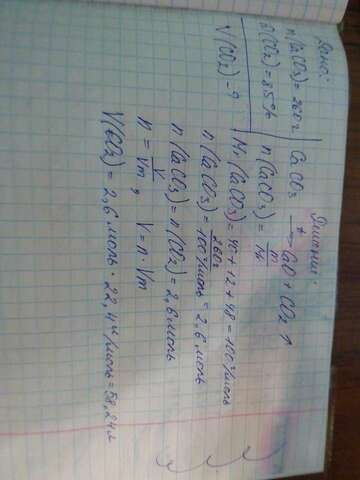 Дано:
m(CaCO3) = 260 г
η(CO2) = 85%
V(CO2) - ?
Рішення:
CaCO3 →t CaO + CO2↑
n(CaCO3) = m/M
Mr(CaCO3) = 40 + 12 + 48 = 100 г/моль
n(CaCO3) = 260г/100г/моль = 2,6 моль
n(CaCO3) = n(CO2) = 2,6 моль
n = V/Vm, V = n · Vm
V(CO2) = 2,6 моль · 22,4 л/моль = 58,24 л